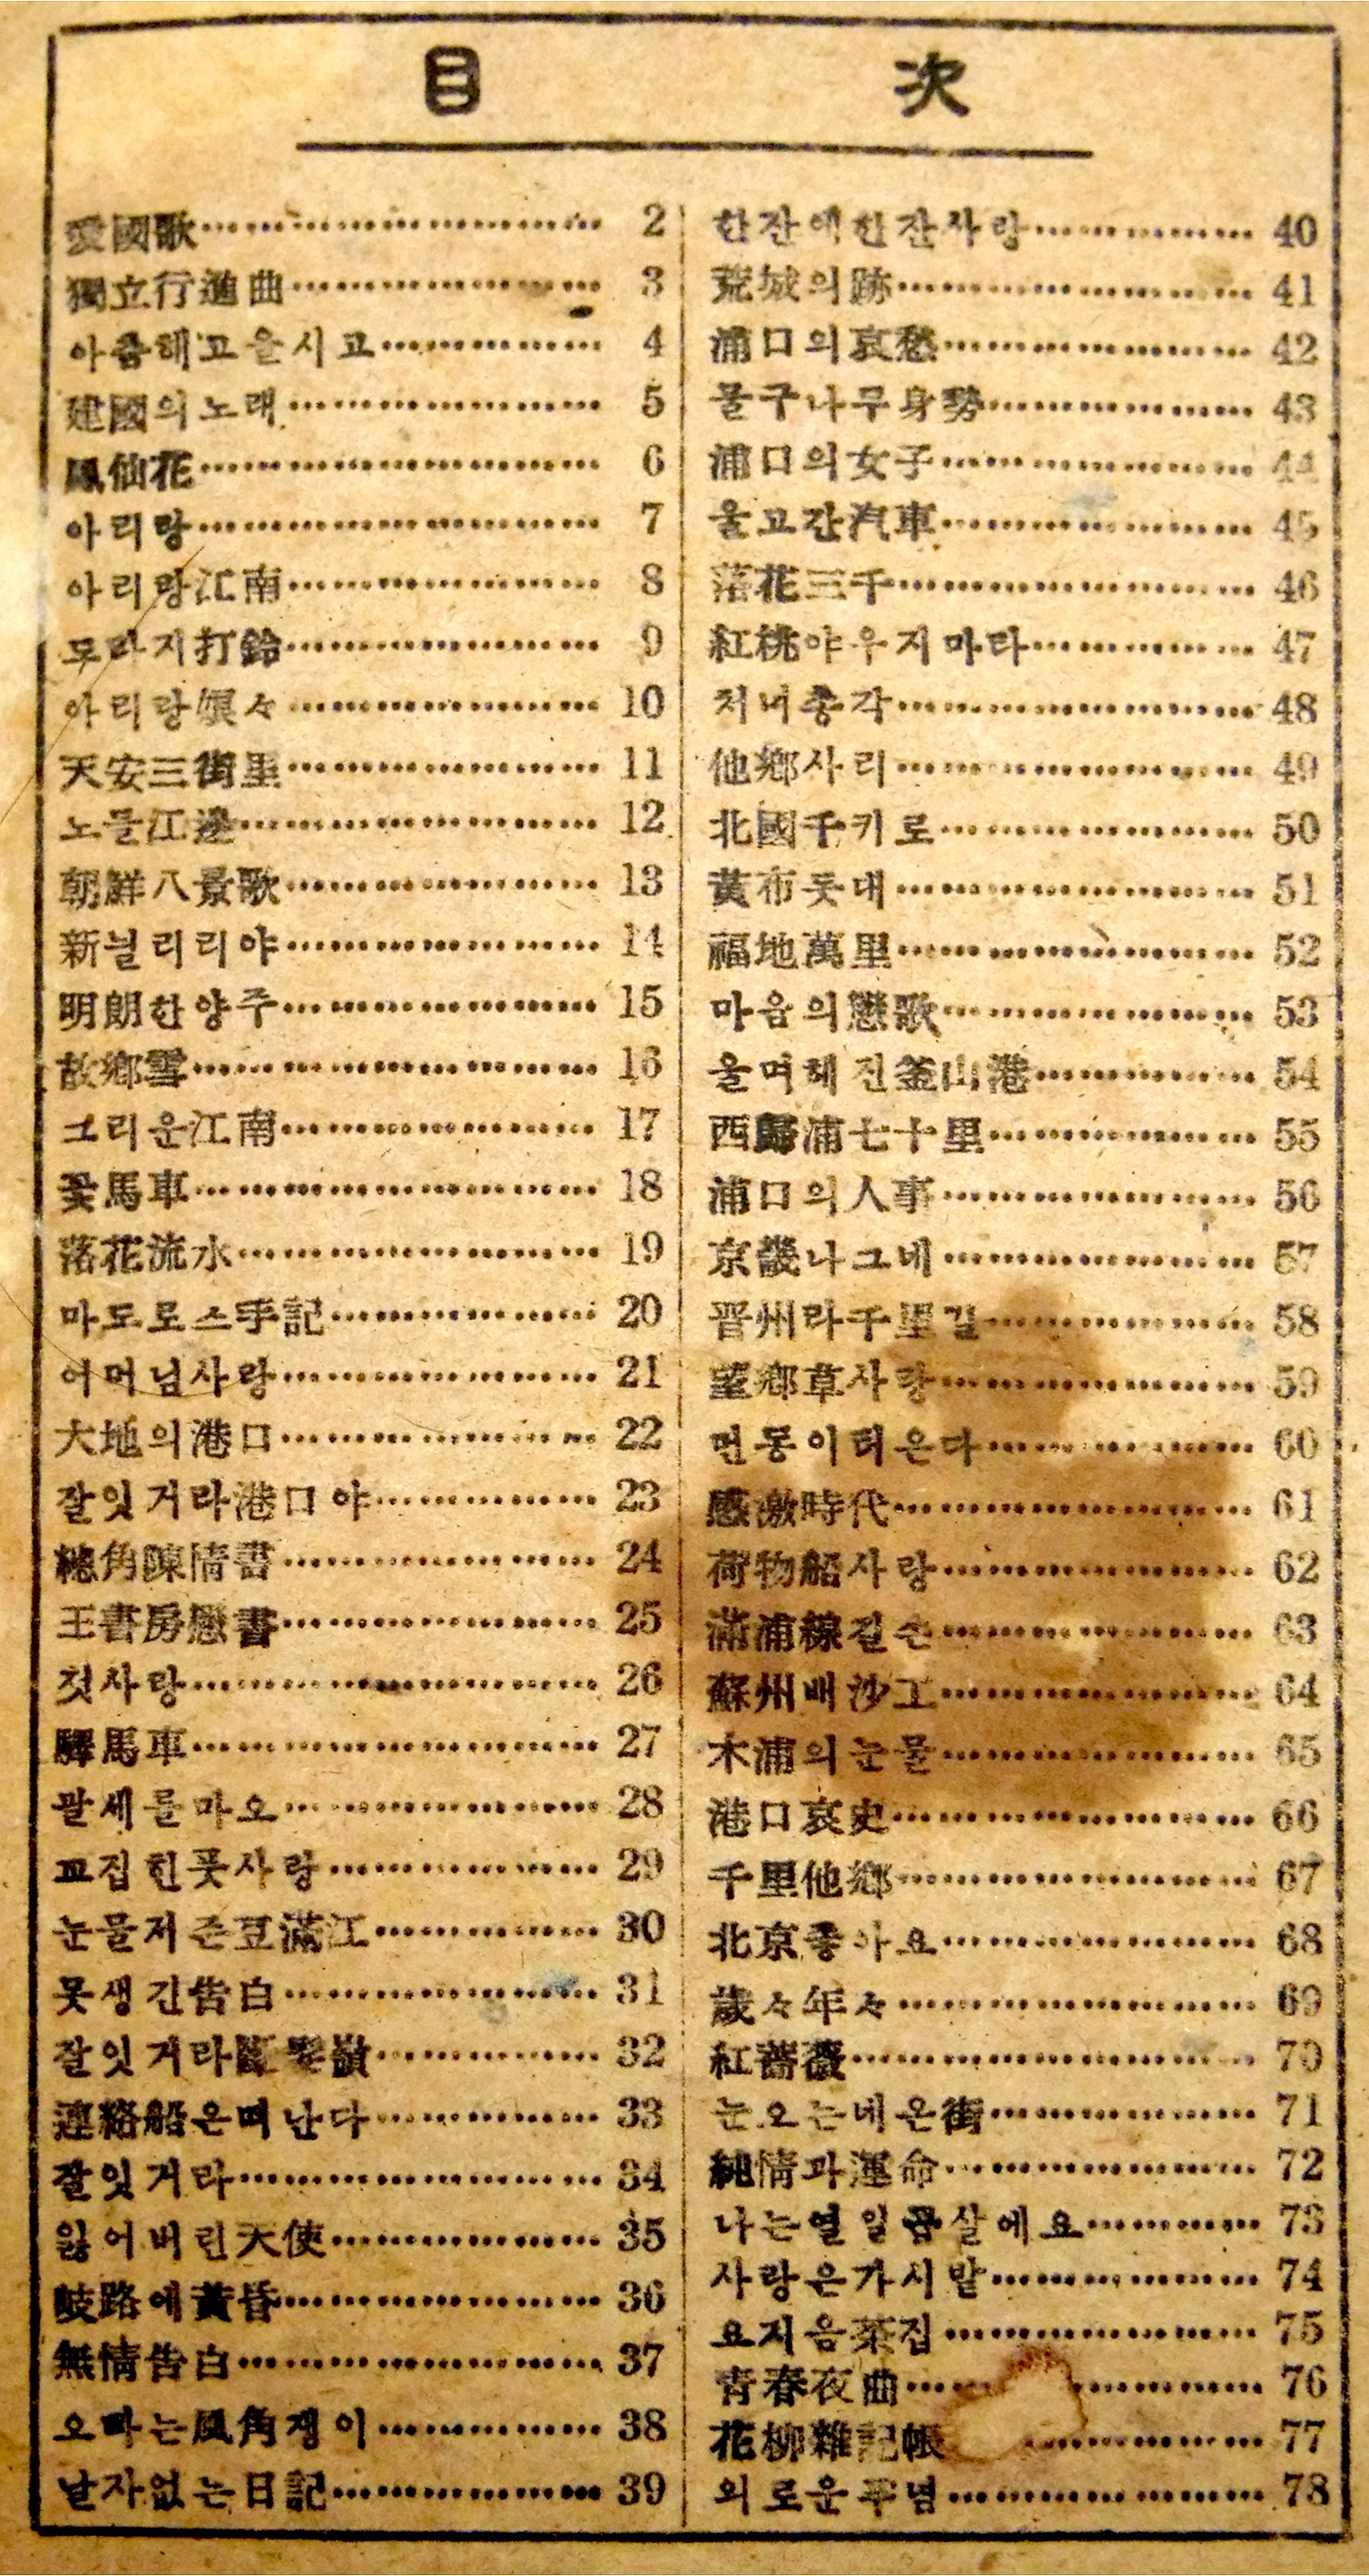 目次
愛國歌 2
獨立行進曲 3
아츰해고을시고 4
建國의노래 5
鳳仙花 6
아리랑 7
아리랑江南 8
도라지打鈴 9
아리랑娘々 10
天安三街里 11
노들江邊 12
朝鮮八景歌 13
新늴리리야 14
明朗한양주 15
故鄕雪 16
그리운江南 17
꽃馬車 18
落花流水 19
마도로스手記 20
어머님사랑 21
大地의港口 22
잘잇거라港口야 23
總角陳情書 24
王書房戀書 25
첫사랑 26
驛馬車 27
괄세를마오 28
꼬집힌풋사랑 29
눈물저즌豆滿江 30
못생긴告白 31
잘잇거라 32
連絡船은떠난다 33
잘잇거라 34
잃어버린天使 35
岐路에黃昏 36
無情告白 37
오빠는風角쟁이 38
날자없는日記 39
한잔에한잔사랑 40
荒城의跡 41
浦口의哀愁 42
물구나무身勢 43
浦口의女子 44
울고간汽車 45
落花三千 46
紅桃야우지마라 47
처녀총각 48
他鄕사리 49
北國千키로 50
黃布돗대 51
福地萬里 52
마음의戀歌 53
울며헤진釜山港 54
西歸浦七十里 55
浦口의人事 56
京畿나그네 57
晋州라千里길 58
望鄕草사랑 59
먼동이터온다 60
感激時代 61
荷物船사랑 62
滿浦線길손 63
蘇州배沙工 64
木浦의눈물 65
港口哀史 66
千里他鄕 67
北京좋아요 68
歲々年々 69
紅薔薇 70
눈오는네온街 71
純情과運命 72
나는열일곱살에요 73
사랑은가시밭 74
요지음茶집 75
靑春夜曲 76
花柳雜記帳 77
외로운푸념 78